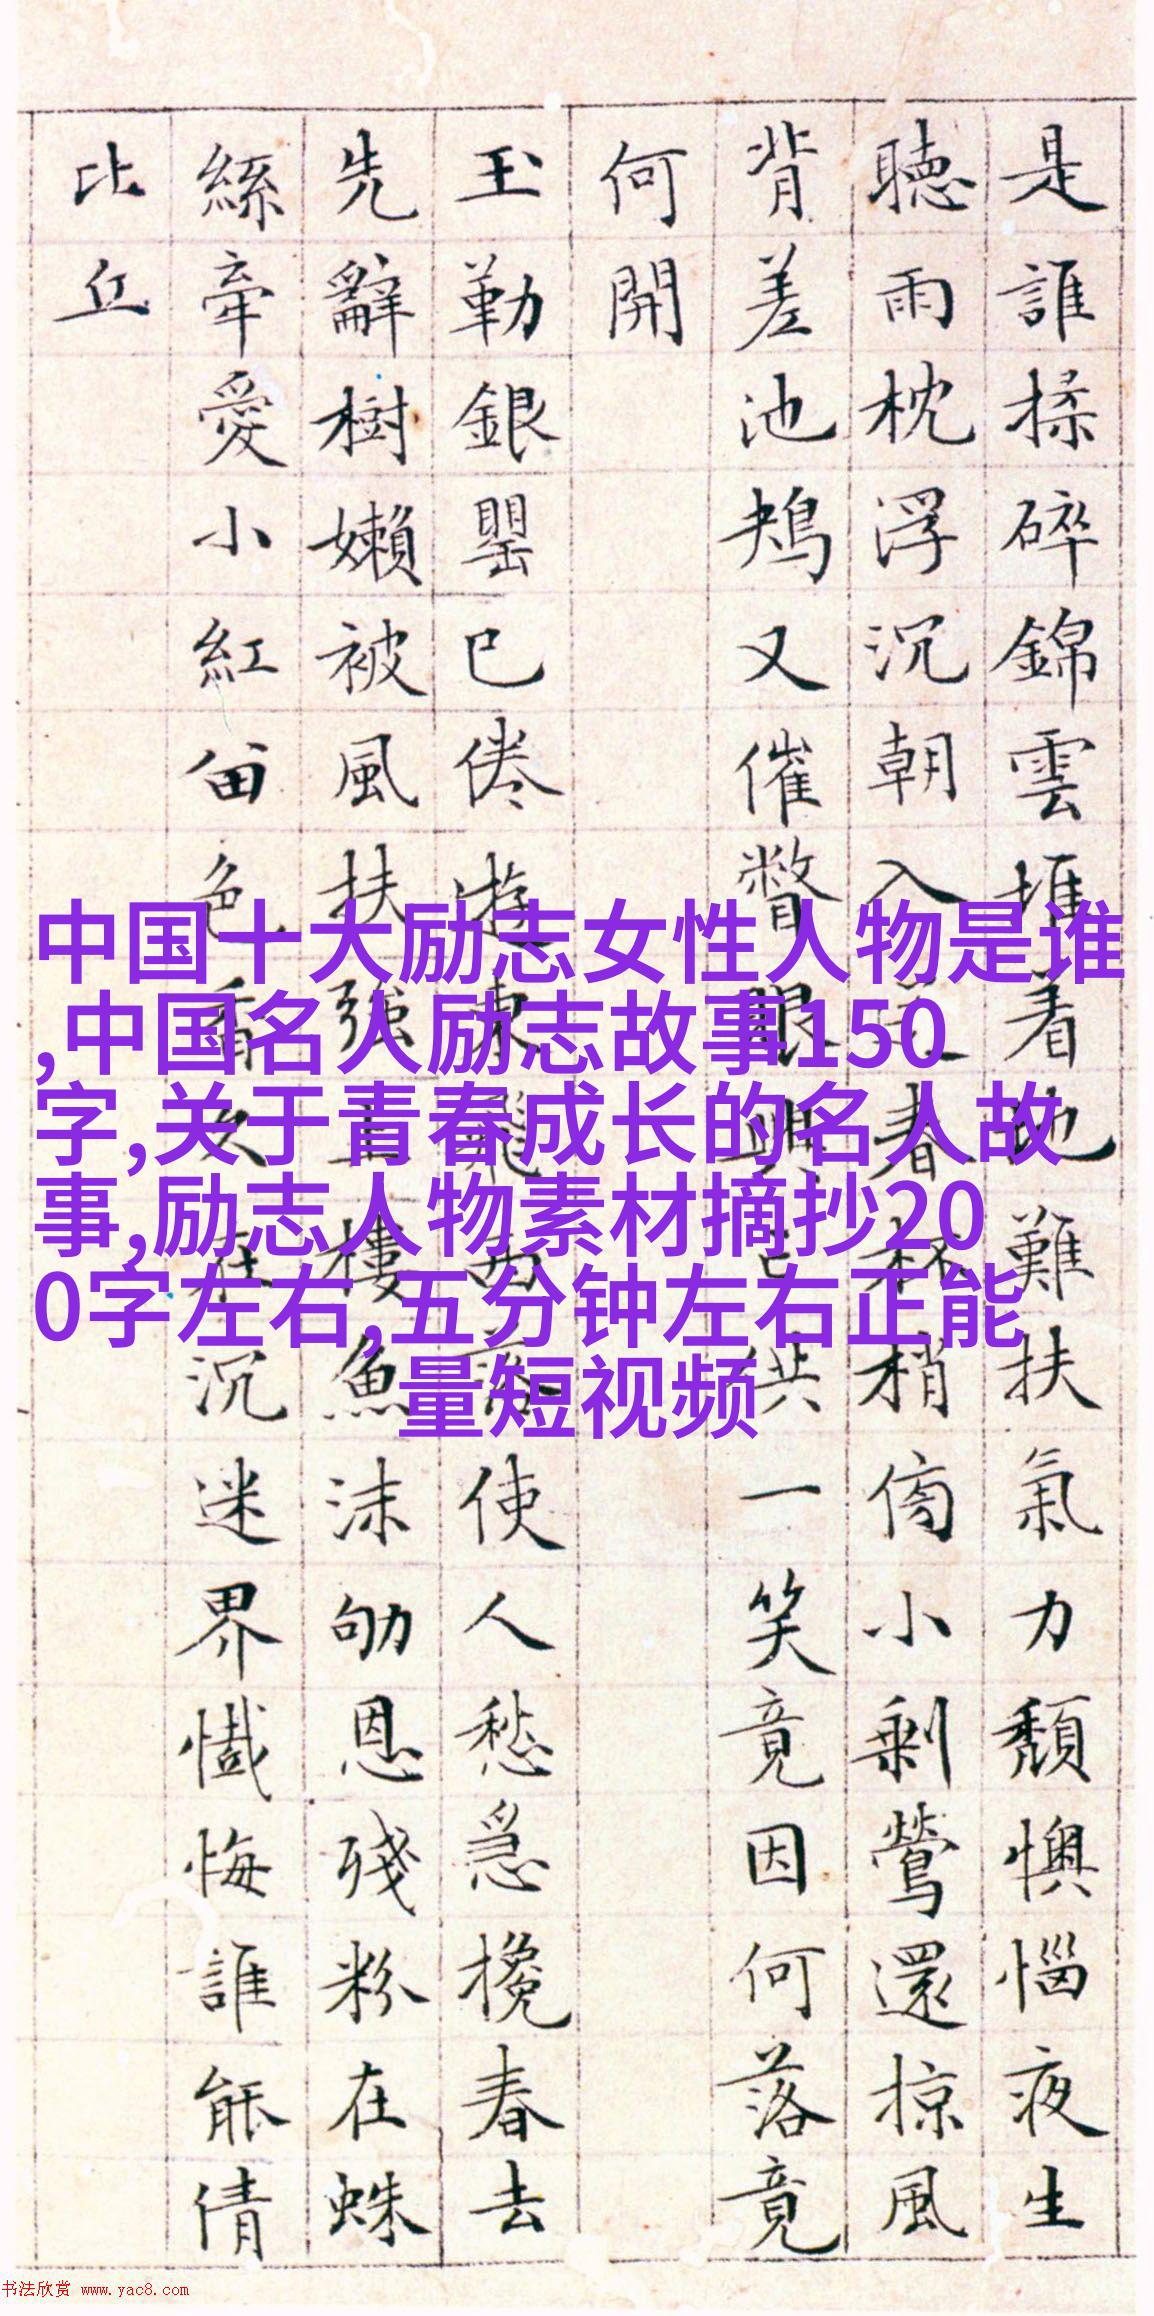 是誰揉碎錦雲堆着地難扶氣力頹懊惱夜生
聽雨枕浮沉朝入春杯梢小剩鶯還掠風
背差池鳺又催瞥眼興亡供一笑竟因何落竟
何開
玉勒銀罌已倦遊東飛西落使人愁急攙春去
先辭樹嬾被風扶強上樓魚沫劬恩殘粉在蛛
絲牽愛小紅留色香久在沉迷界懺悔誰能倩
比丘
中国十大励志女性人物是谁
,中国名人励志故事150
字,关于青春成长的名人故
事,励志人物素材摘抄20
0字左右,五分钟左右正能
量短视频
书法欣赏 www.yac8.com